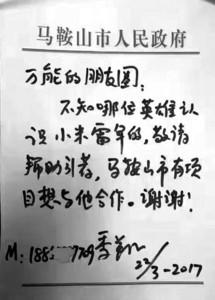 马鞍山市人民政府
万能的朋友圈:
不知哪位英雄认
识小米雷军的,敬请
帮助引荐,马鞍山市有项
目想与他合作。谢谢!
M: 188 7709 季翔
22/3-2017